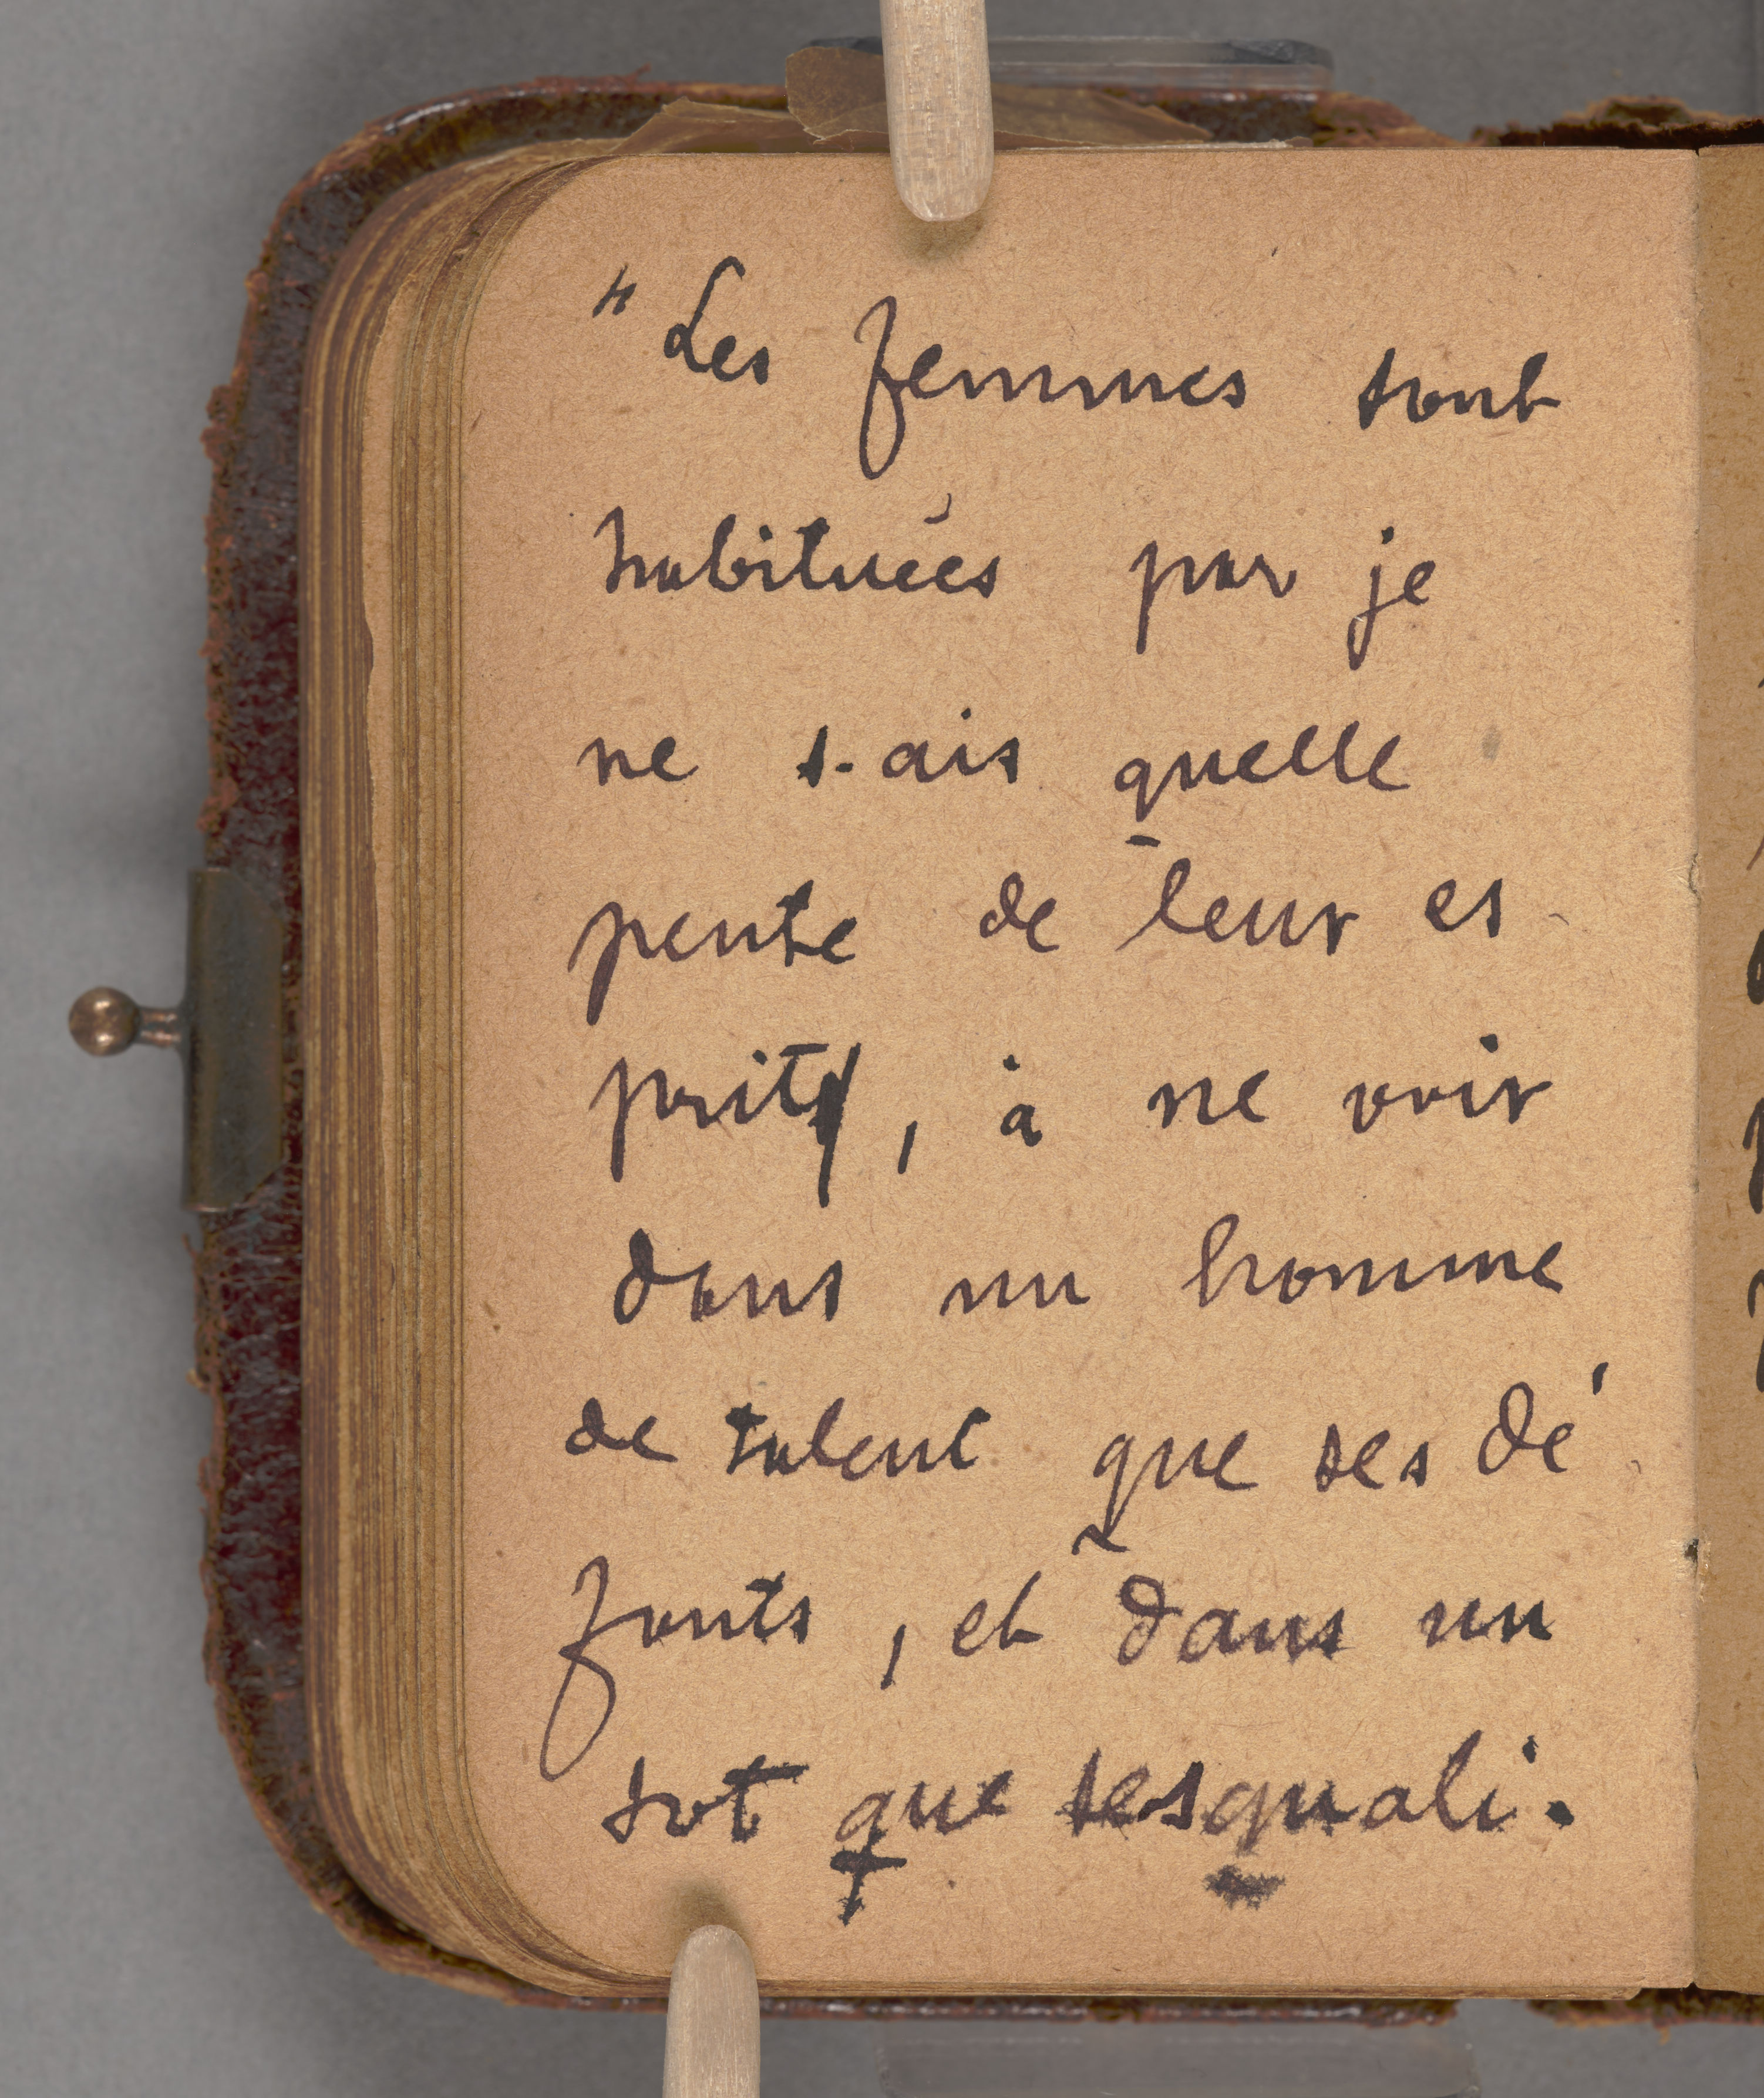 "Les femmes sont
habituées par je
ne s-ais quelle
pente de leur es-
prit, à ne voir
dans un homme
de talent que ses dé-
fauts, et dans un
sot que ses quali-